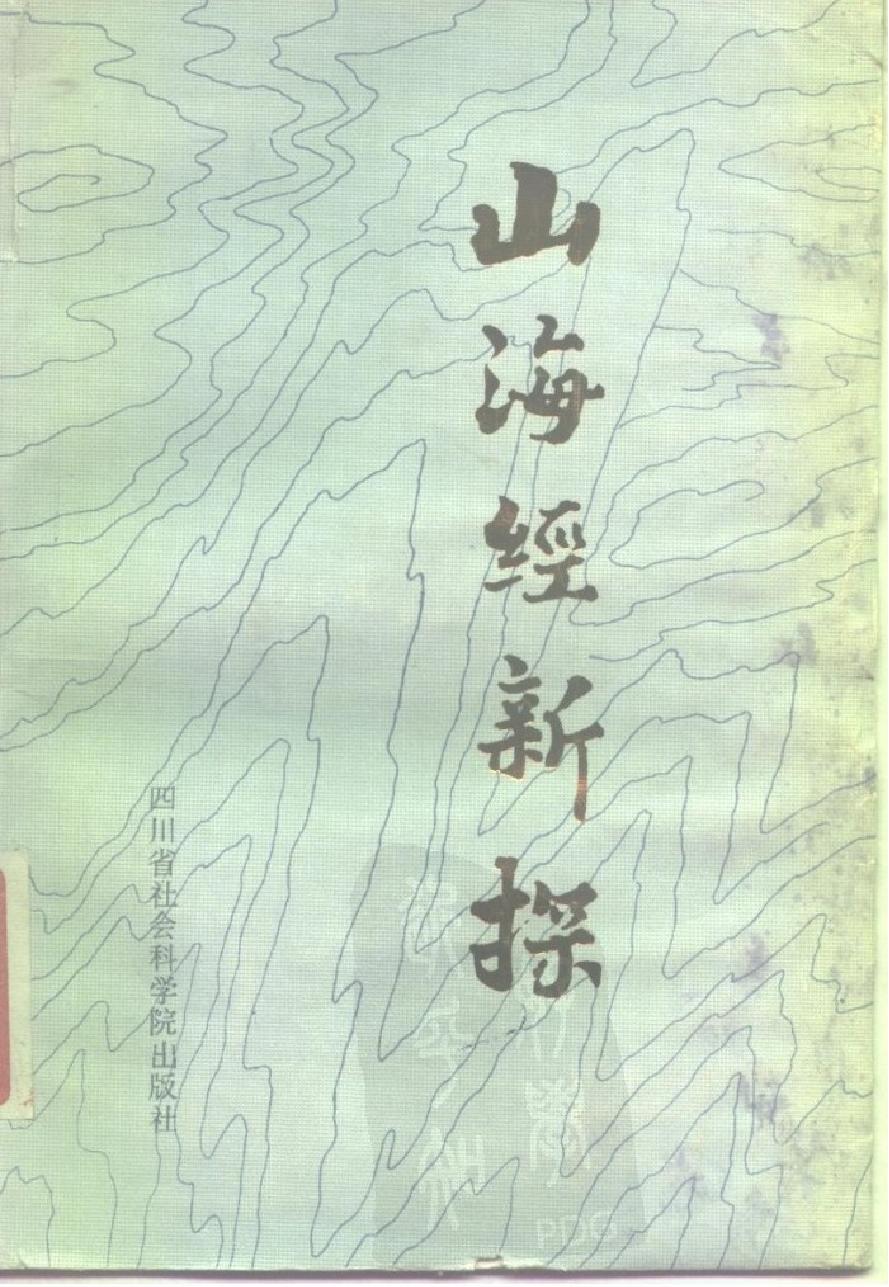 山海經新探
四川省社会科学院出版社
PDG